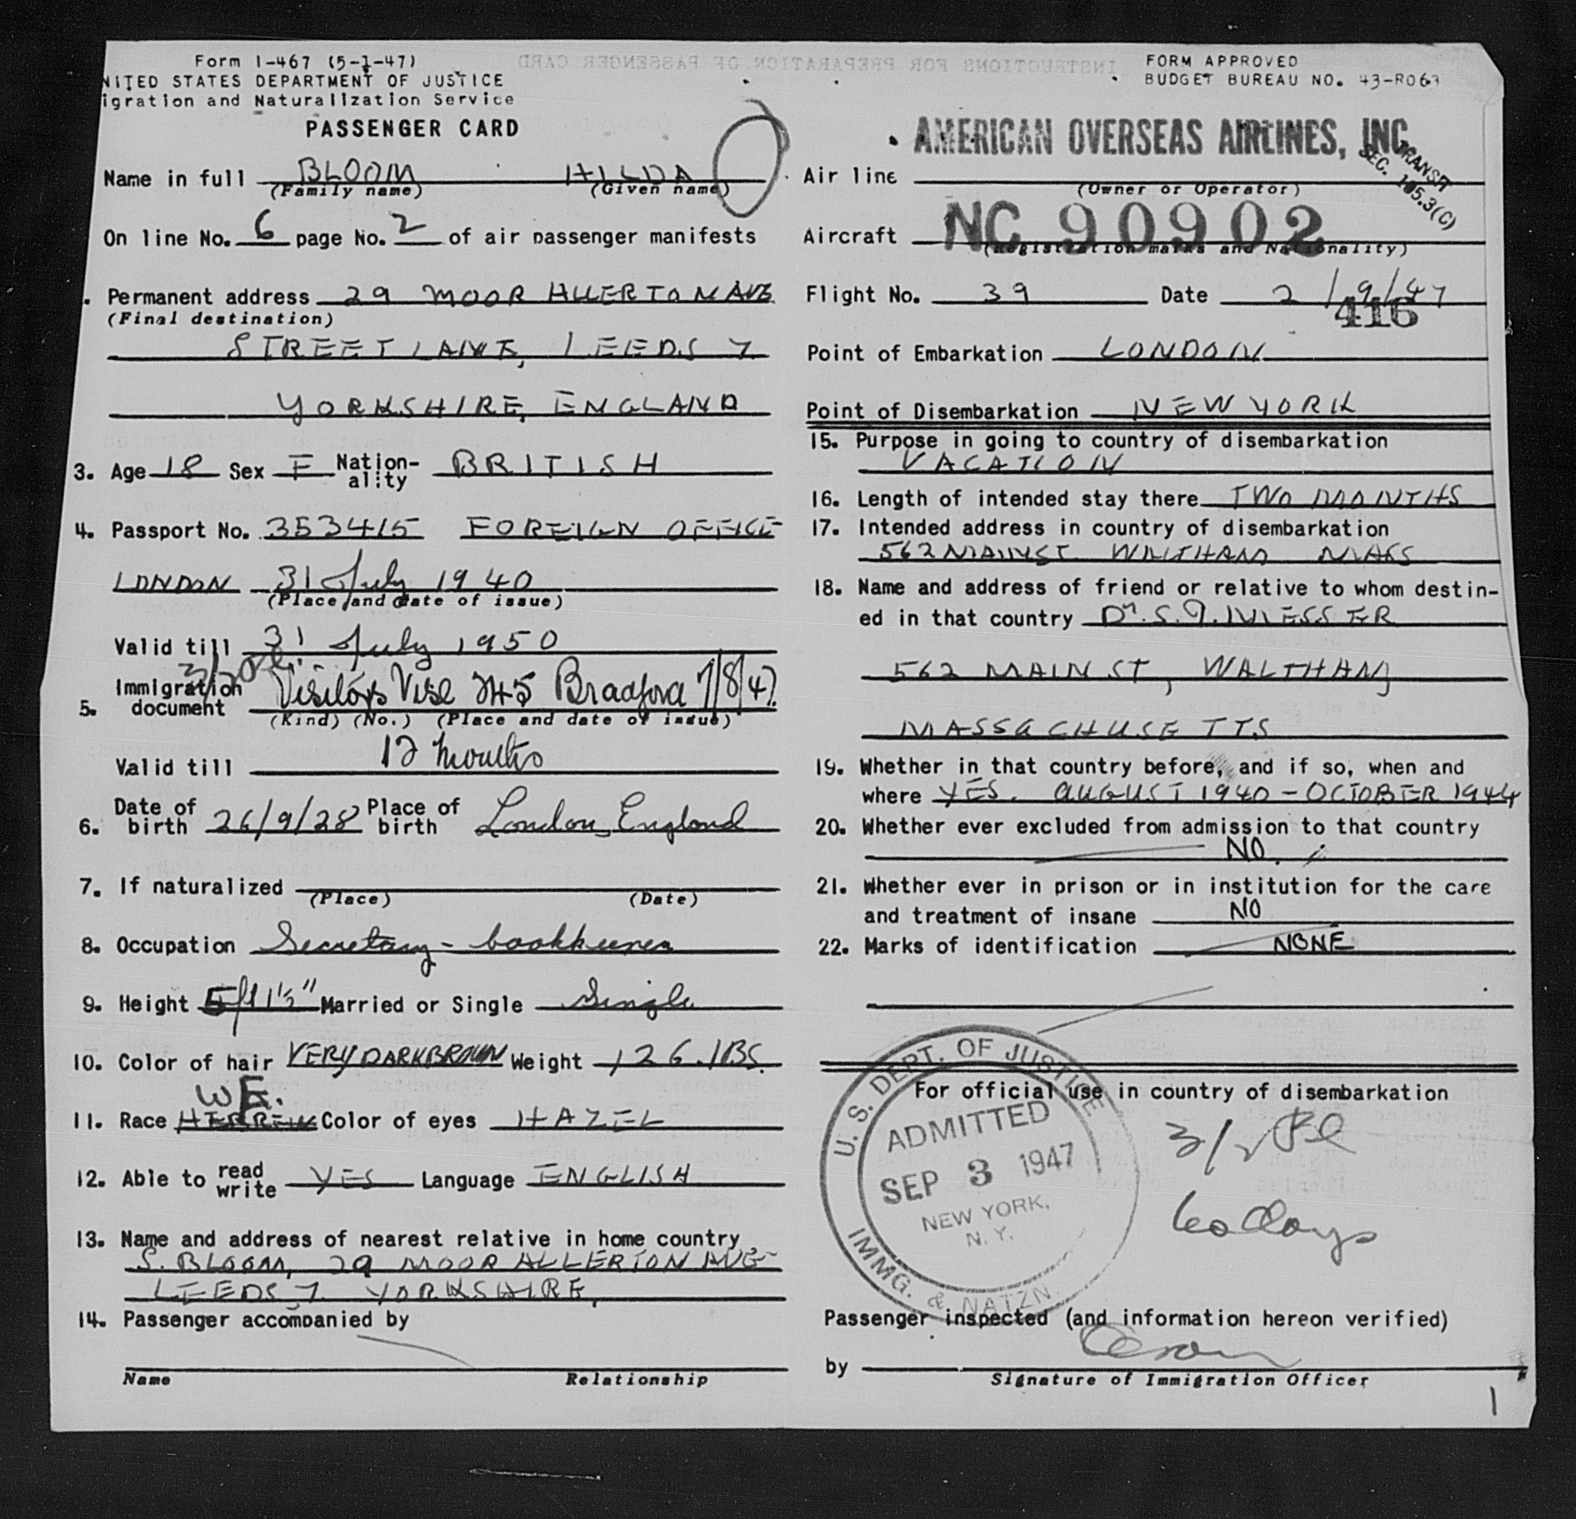 Form I-467 (5-1-47)
NITED STATES DEPARTMENT OF JUSTICE
igration and Naturalization Service
PASSENGER CARD
Name in full BLOOM HILDA
(Family name) (Given name)
On line No. 6 page No. 2 of air passenger manifests
. Permanent address 29 MOOR ALLERTON AVE
(Final destination)
STREET LANE, LEEDS 7
YORKSHIRE, ENGLAND
3. Age 18 Sex F Nation-ality BRITISH
4. Passport No. 353415 FOREIGN OFFICE
LONDON 31 July 1940
(Place and date of issue)
Valid till 31 July 1950
5. Immigration document Visitors Vise 245 Bradford 7/8/47.
(Kind) (No.) (Place and date of issue)
Valid till 12 months
6. Date of birth 26/9/28 Place of birth London, England
7. If naturalized
(Place) (Date)
8. Occupation Secretary - bookkeeper
9. Height 5ft 1½" Married or Single Single
10. Color of hair VERY DARK BROWN Weight 126 lBS.
WE.
11. Race HEBREW Color of eyes HAZEL
12. Able to read write YES Language ENGLISH
13. Name and address of nearest relative in home country
S. BLOOM, 29 MOOR ALLERTON AVE
LEEDS, 7. YORKSHIRE,
14. Passenger accompanied by
Name Relationship
INSTRUCTIONS FOR PREPARATION OF PASSENGER CARD
FORM APPROVED
BUDGET BUREAU NO. 43-R063
AMERICAN OVERSEAS AIRLINES, INC.
TRANSIT
SEC. 165.3(C)
Air line
(Owner or Operator)
Aircraft NC 90902
(Registration marks and Nationality)
Flight No. 39 Date 2/9/47
416
Point of Embarkation LONDON
Point of Disembarkation NEW YORK
15. Purpose in going to country of disembarkation
VACATION
16. Length of intended stay there TWO MONTHS
17. Intended address in country of disembarkation
562 MAIN ST WALTHAM MASS
18. Name and address of friend or relative to whom destin-
ed in that country Dr. S. J. MESSER
562 MAIN ST, WALTHAM,
MASSACHUSETTS
19. Whether in that country before, and if so, when and
where YES. AUGUST 1940 - OCTOBER 1944
20. Whether ever excluded from admission to that country
NO.
21. Whether ever in prison or in institution for the care
and treatment of insane NO
22. Marks of identification NONE
For official use in country of disembarkation
U. S. DEPT. OF JUSTICE
ADMITTED
SEP 3 1947
NEW YORK,
N. Y.
IMMG. & NATZN.
60 days
Passenger inspected (and information hereon verified)
by
Signature of Immigration Officer
1